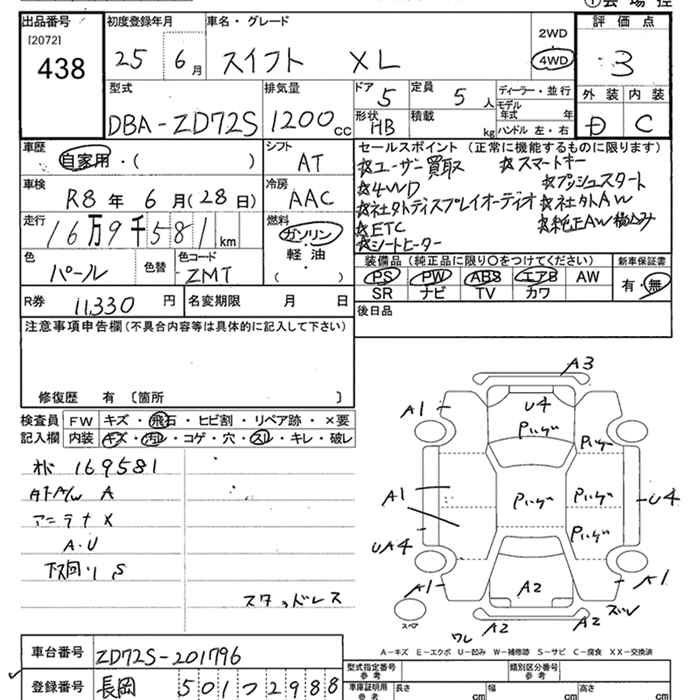 ①会場控
出品番号
[2072]
438
初度登録年月
25 年 6 月
車名・グレード
スイフト XL
2WD
4WD
評価点
3
外装 内装
D C
型式
DBA-ZD72S
排気量
1200 cc
ドア 5
形状 HB
定員 5 人
積載 kg
ディーラー・並行
モデル年式 年
ハンドル 左・右
車歴
自家用・( )
シフト
AT
セールスポイント (正常に機能するものに限ります)
☆ユーザー買取 ☆スマートキー
☆4WD ☆プッシュスタート
☆社外ディスプレイオーディオ ☆社外AW
☆ETC ☆純正AW積込み
☆シートヒーター
車検
R8 年 6 月(28 日)
冷房
AAC
走行
16万9千581 km
燃料
ガソリン
軽油
( )
色
パール
色替
色コード
ZMT
装備品 (純正品に限り○をつけてください)
PS PW ABS エアB AW
SR ナビ TV カワ
新車保証書
有・無
R券 11,330 円
名変期限 月 日
後日品
注意事項申告欄(不具合内容等は具体的に記入して下さい)
修復歴 有 〔箇所 〕
検査員記入欄
FW キズ・飛石・ヒビ割・リペア跡・×要
内装 キズ・汚レ・コゲ・穴・スレ・キレ・破レ
169581
A
アンテナ X
A・U
下回り S
スタッドレス
A3
A1
U4
A1
UA4
A1
U4
A1
A2
ズレ
スペア
ワレ A2 A2
A-キズ E-エクボ U-凹み W-補修跡 S-サビ C-腐食 XX-交換済
車台番号 ZD72S-201796
登録番号 長岡 501 つ 2988
型式指定番号 参考
類別区分番号 参考
車庫証明用 参考 長さ cm 幅 cm 高さ cm